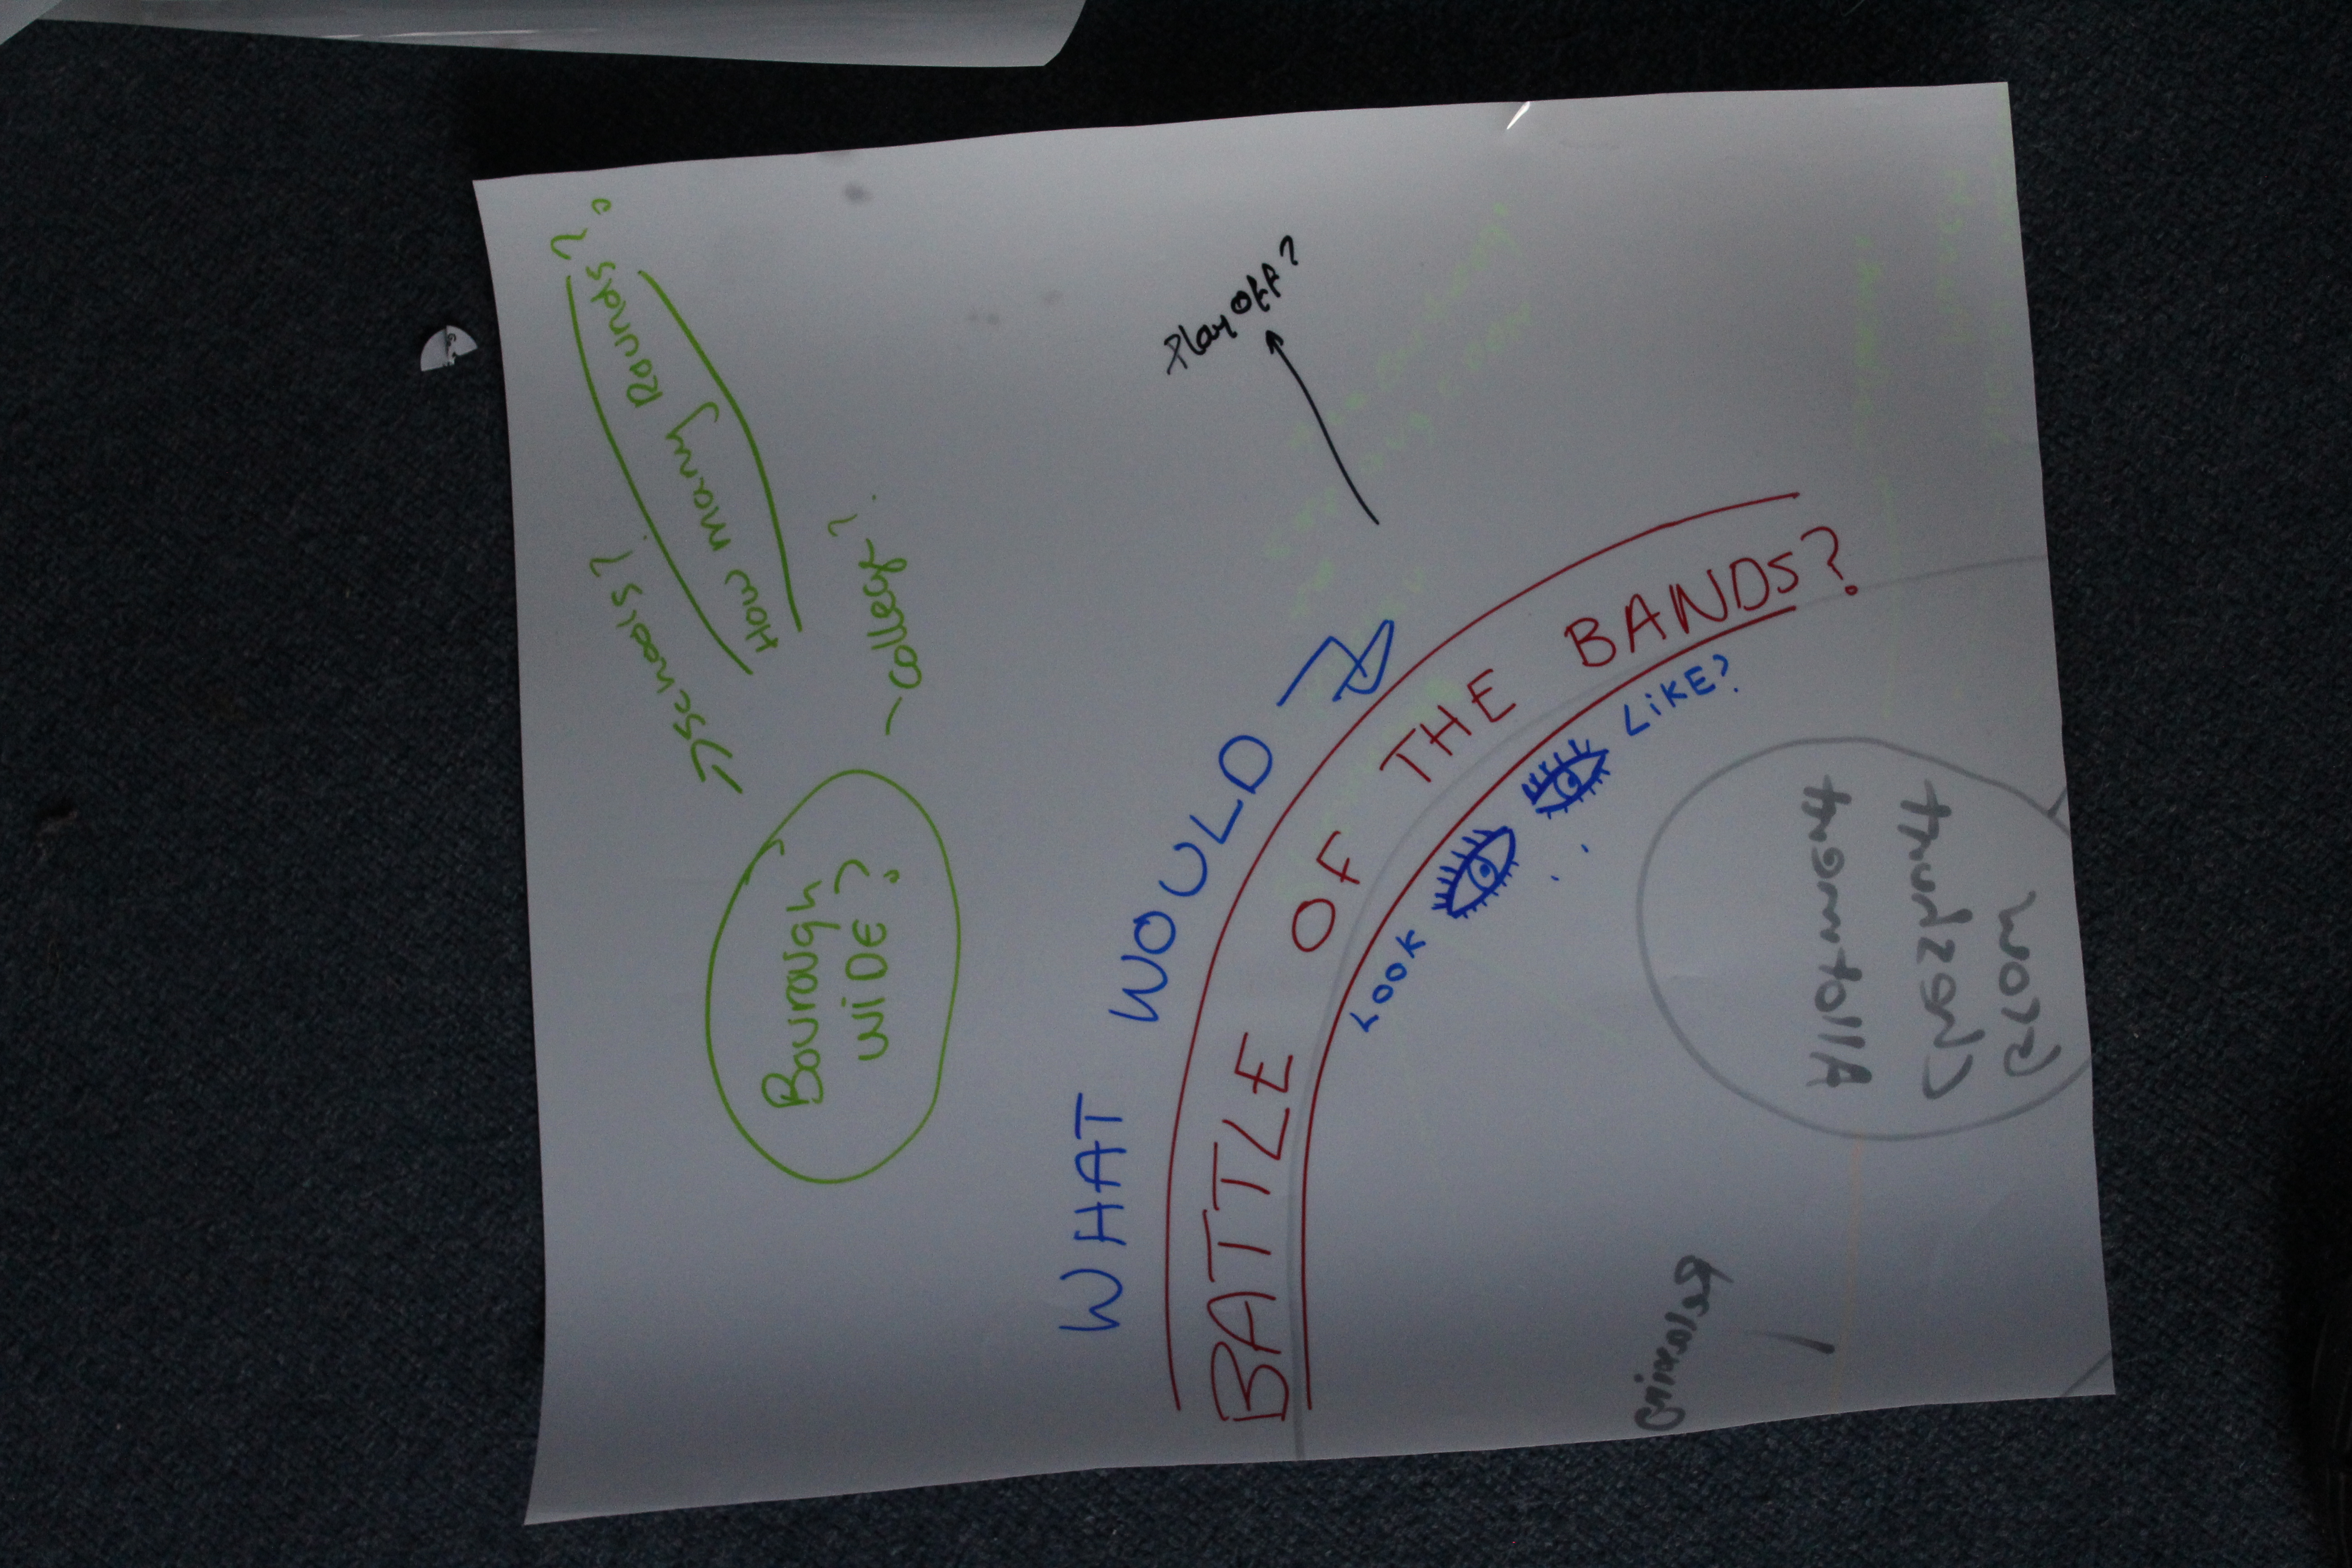 How many Rounds?
Schools?
College?
Bourough
WiDE?
Play off?
WHAT WOULD
BATTLE OF THE BANDS?
LOOK LiKE?